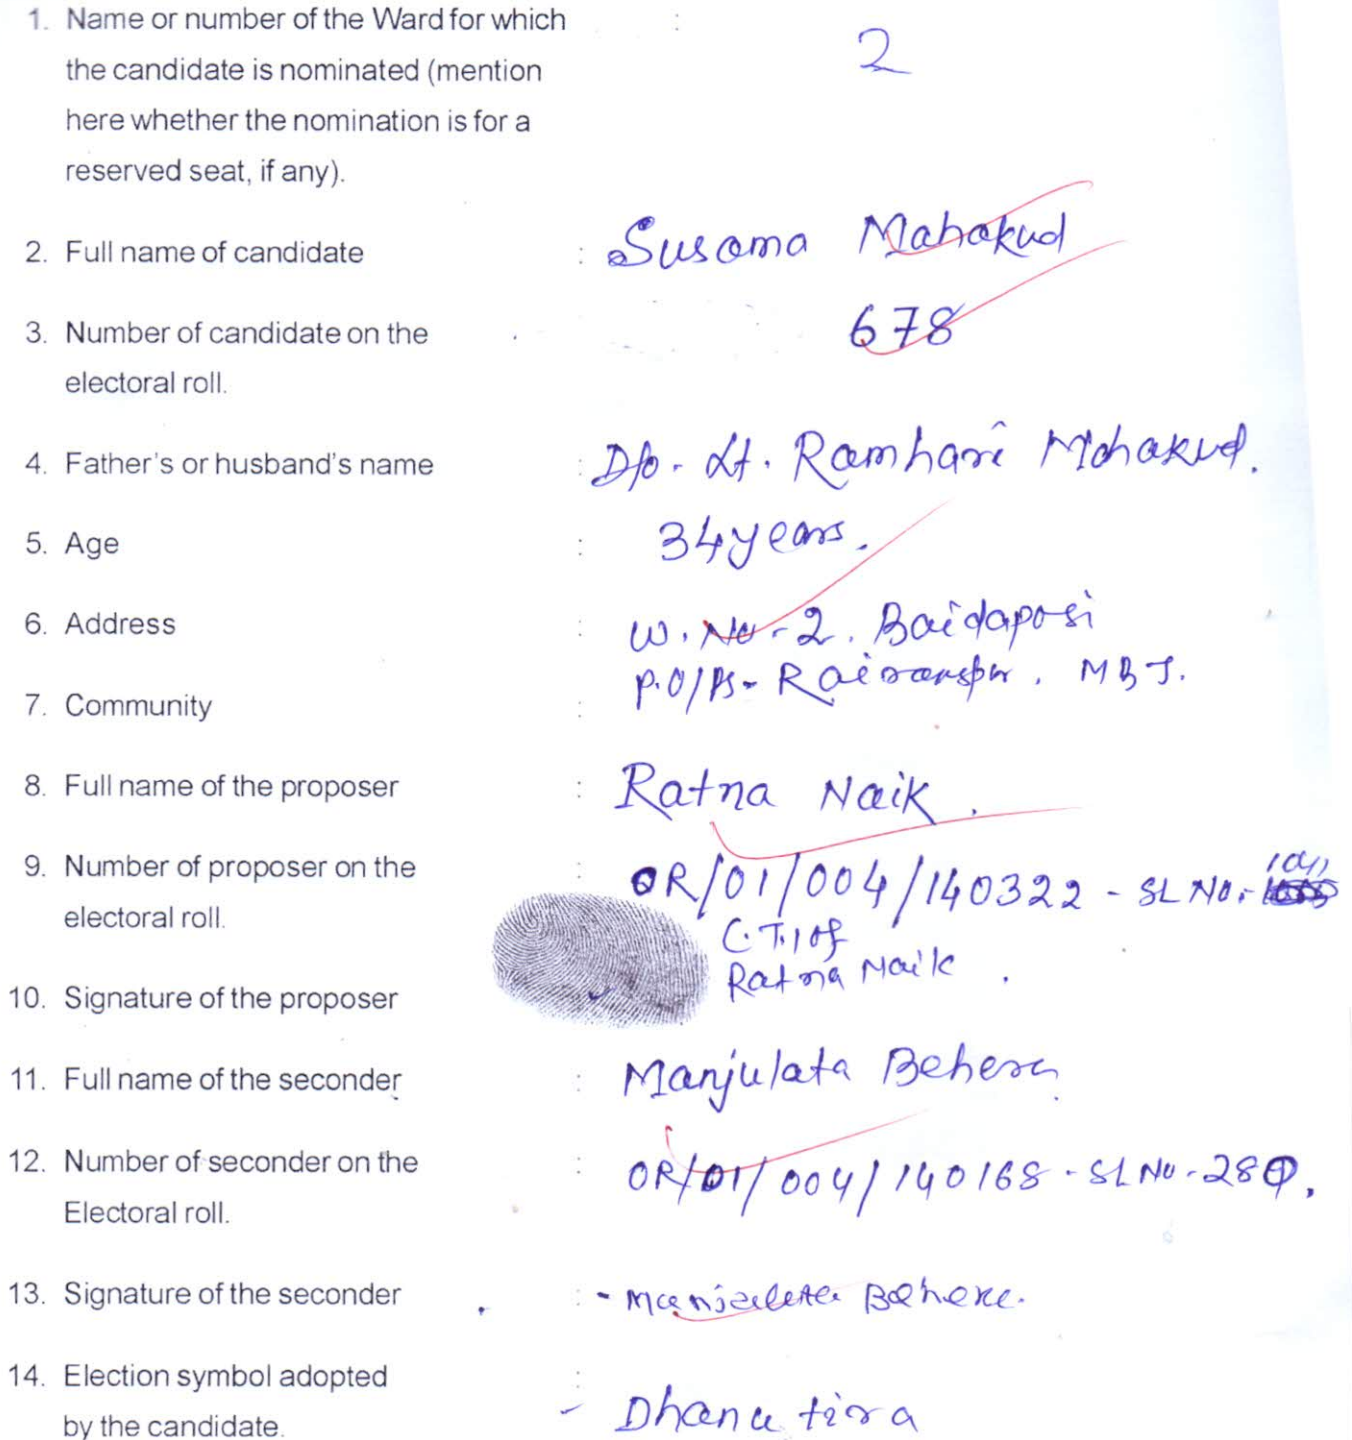 1. Name or number of the Ward for which :
the candidate is nominated (mention 2
here whether the nomination is for a
reserved seat, if any).
2. Full name of candidate : Susama Mahakud
3. Number of candidate on the 678
electoral roll.
4. Father's or husband's name : D/o. Lt. Ramhari Mohakud.
5. Age : 34 years.
6. Address : W. No - 2. Baidaposi
P.O/PS- Rairangpur. MBJ.
7. Community :
8. Full name of the proposer : Ratna Naik.
9. Number of proposer on the : OR/01/004/140322 - SL No.-
electoral roll. C.T.I of
Ratna Naik.
10. Signature of the proposer
11. Full name of the seconder : Manjulata Behera
12. Number of seconder on the : OR/01/004/140168 - SL No - 289.
Electoral roll.
13. Signature of the seconder : - Manjulata Behera.
14. Election symbol adopted :
by the candidate. - Dhanu tira